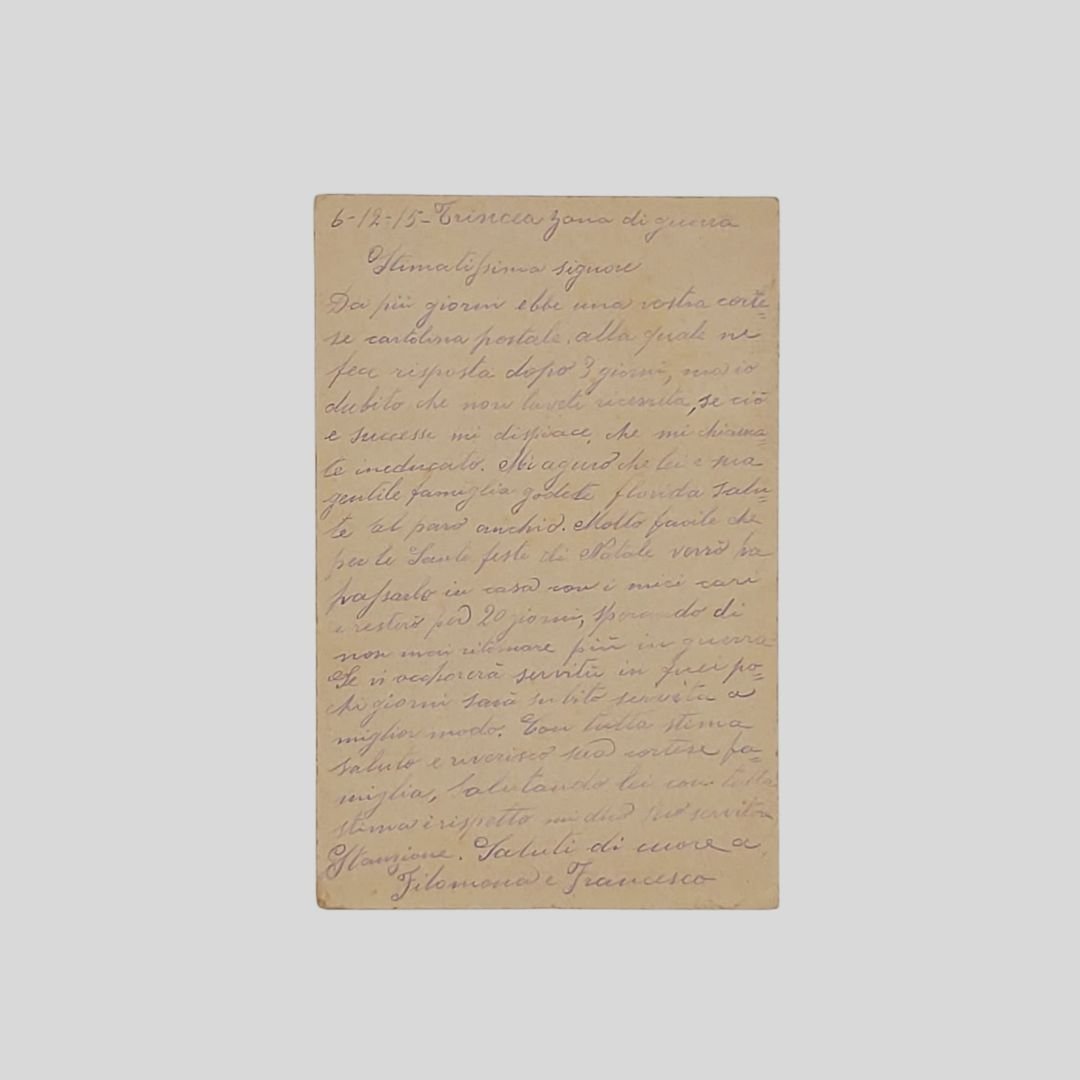 6-12-15- Trincea zona di guerra
Stimatissimo signore
Da più giorni ebbe una vostra corte=
se cartolina postale, alla quale ne
feci risposta dopo 3 giorni, ma io
dubito che non l'avete ricevuta, se ciò
e successe mi dispiace, che mi chiama=
te ineducato. Mi aguro che lei e sua
gentile famiglia godete florida salu=
te al paro anchio. Molto facile che
per le Sante feste di Natale verrò ha
passarlo in casa con i miei cari
e resterò per 20 giorni, sperando di
non mai ritornare più in guerra
Se vi occhorerà servitù in quei po=
chi giorni sarà subito servita a
miglior modo. Con tutta stima
saluto e riverisco sua cortese fa=
miglia, Salutando lei con tutta
stima i rispetto mi dico suo servitore
Stanzione. Saluti di cuore a
Filomena e Francesco